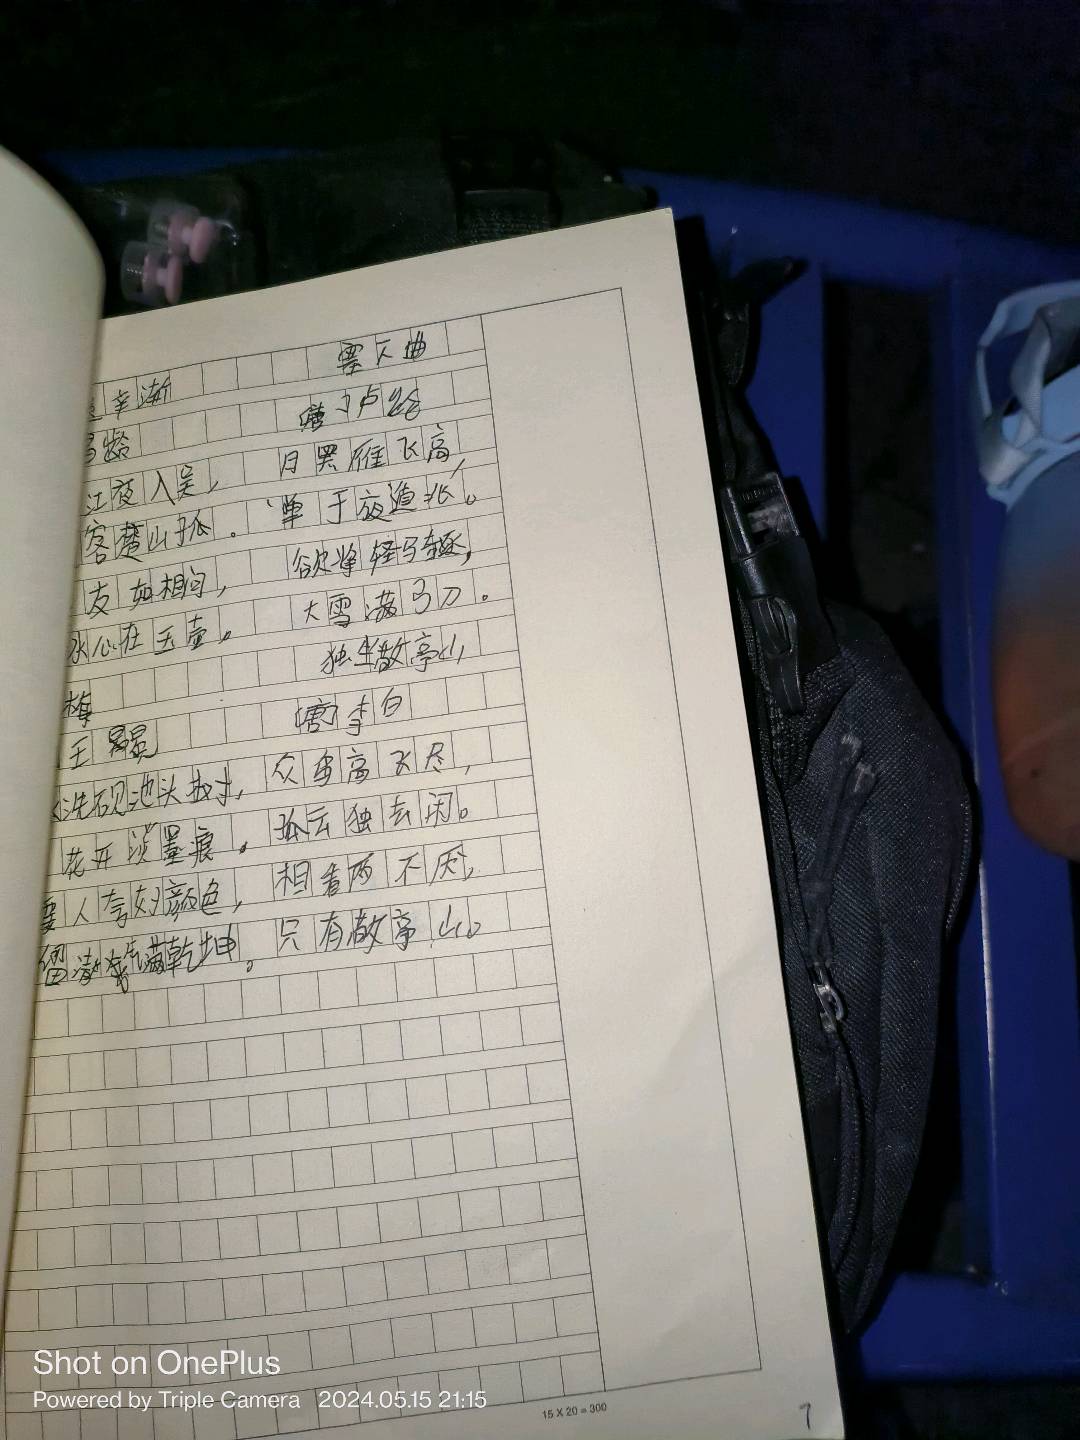 辛渐
昌龄
江夜入吴，
客楚山孤。
友如相问，
冰心在玉壶。
梅
王冕
洗砚池头树，
花开淡墨痕。
要人夸好颜色，
留清气满乾坤。
塞下曲
唐卢纶
月黑雁飞高，
单于夜遁逃。
欲将轻马逐，
大雪满弓刀。
独坐敬亭山
（唐）李白
众鸟高飞尽，
孤云独去闲。
相看两不厌，
只有敬亭山。
15 X 20 = 300
7
Shot on OnePlus
Powered by Triple Camera 2024.05.15 21:15